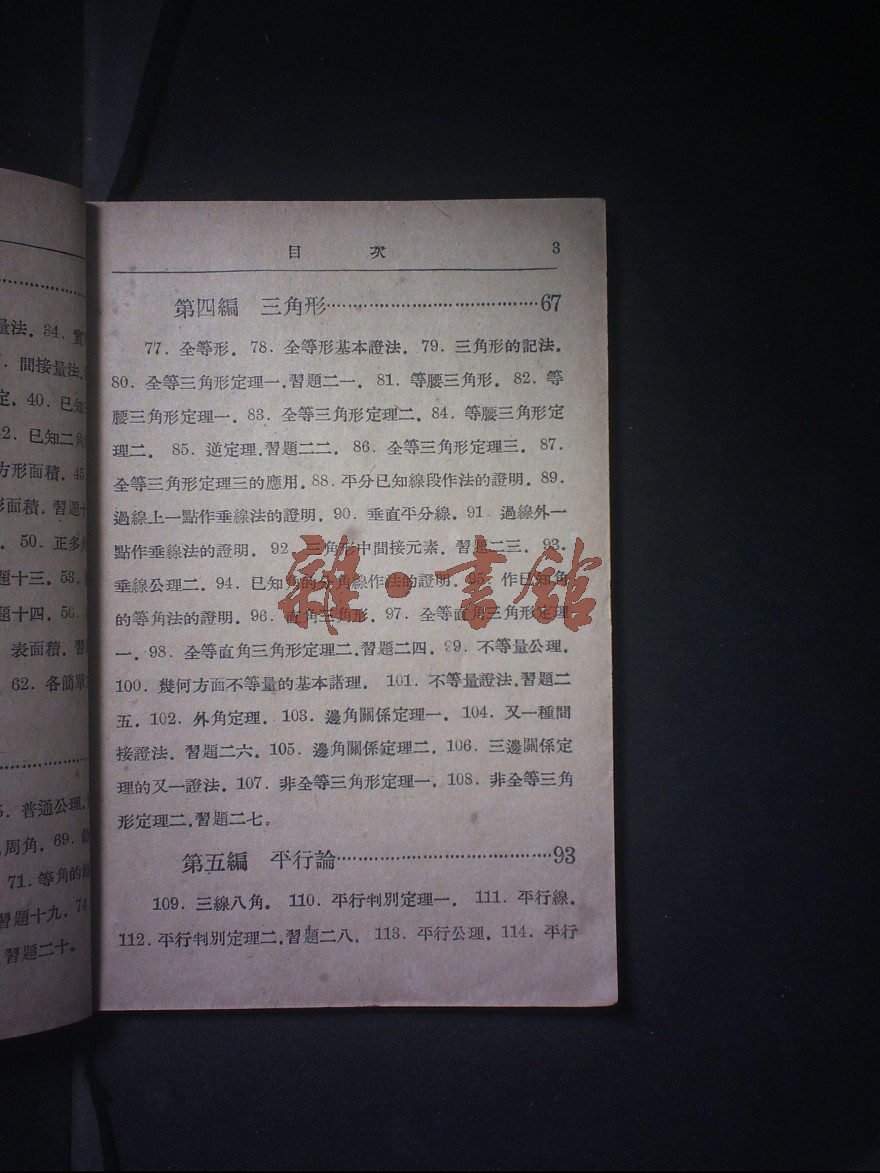 量法. 34. 實
間接量法,
定. 40. 已知
2. 已知二角
方形面積. 45
形面積. 習題十
. 50. 正多
題十三. 53.
題十四. 56.
表面積. 習
62. 各簡單
5. 普通公理,
周角. 69.
71. 等角的
習題十九. 74.
習題二十.
目 次 3
第四編 三角形……………………………………67
77. 全等形. 78. 全等形基本證法. 79. 三角形的記法.
80. 全等三角形定理一,習題二一. 81. 等腰三角形. 82. 等
腰三角形定理一. 83. 全等三角形定理二. 84. 等腰三角形定
理二. 85. 逆定理,習題二二. 86. 全等三角形定理三. 87.
全等三角形定理三的應用. 88. 平分已知線段作法的證明. 89.
過線上一點作垂線法的證明. 90. 垂直平分線. 91. 過線外一
點作垂線法的證明. 92. 三角形中間接元素. 習題二三. 93.
垂線公理二. 94. 已知角的分角線作法的證明. 95. 作已知角
的等角法的證明. 96. 直角三角形. 97. 全等直角三角形定理
一. 98. 全等直角三角形定理二,習題二四. 99. 不等量公理.
100. 幾何方面不等量的基本諸理. 101. 不等量證法,習題二
五. 102. 外角定理. 103. 邊角關係定理一. 104. 又一種間
接證法. 習題二六. 105. 邊角關係定理二. 106. 三邊關係定
理的又一證法. 107. 非全等三角形定理一. 108. 非全等三角
形定理二,習題二七。
第五編 平行論……………………………………93
109. 三線八角. 110. 平行判別定理一. 111. 平行線.
112. 平行判別定理二,習題二八. 113. 平行公理. 114. 平行
雜·書館